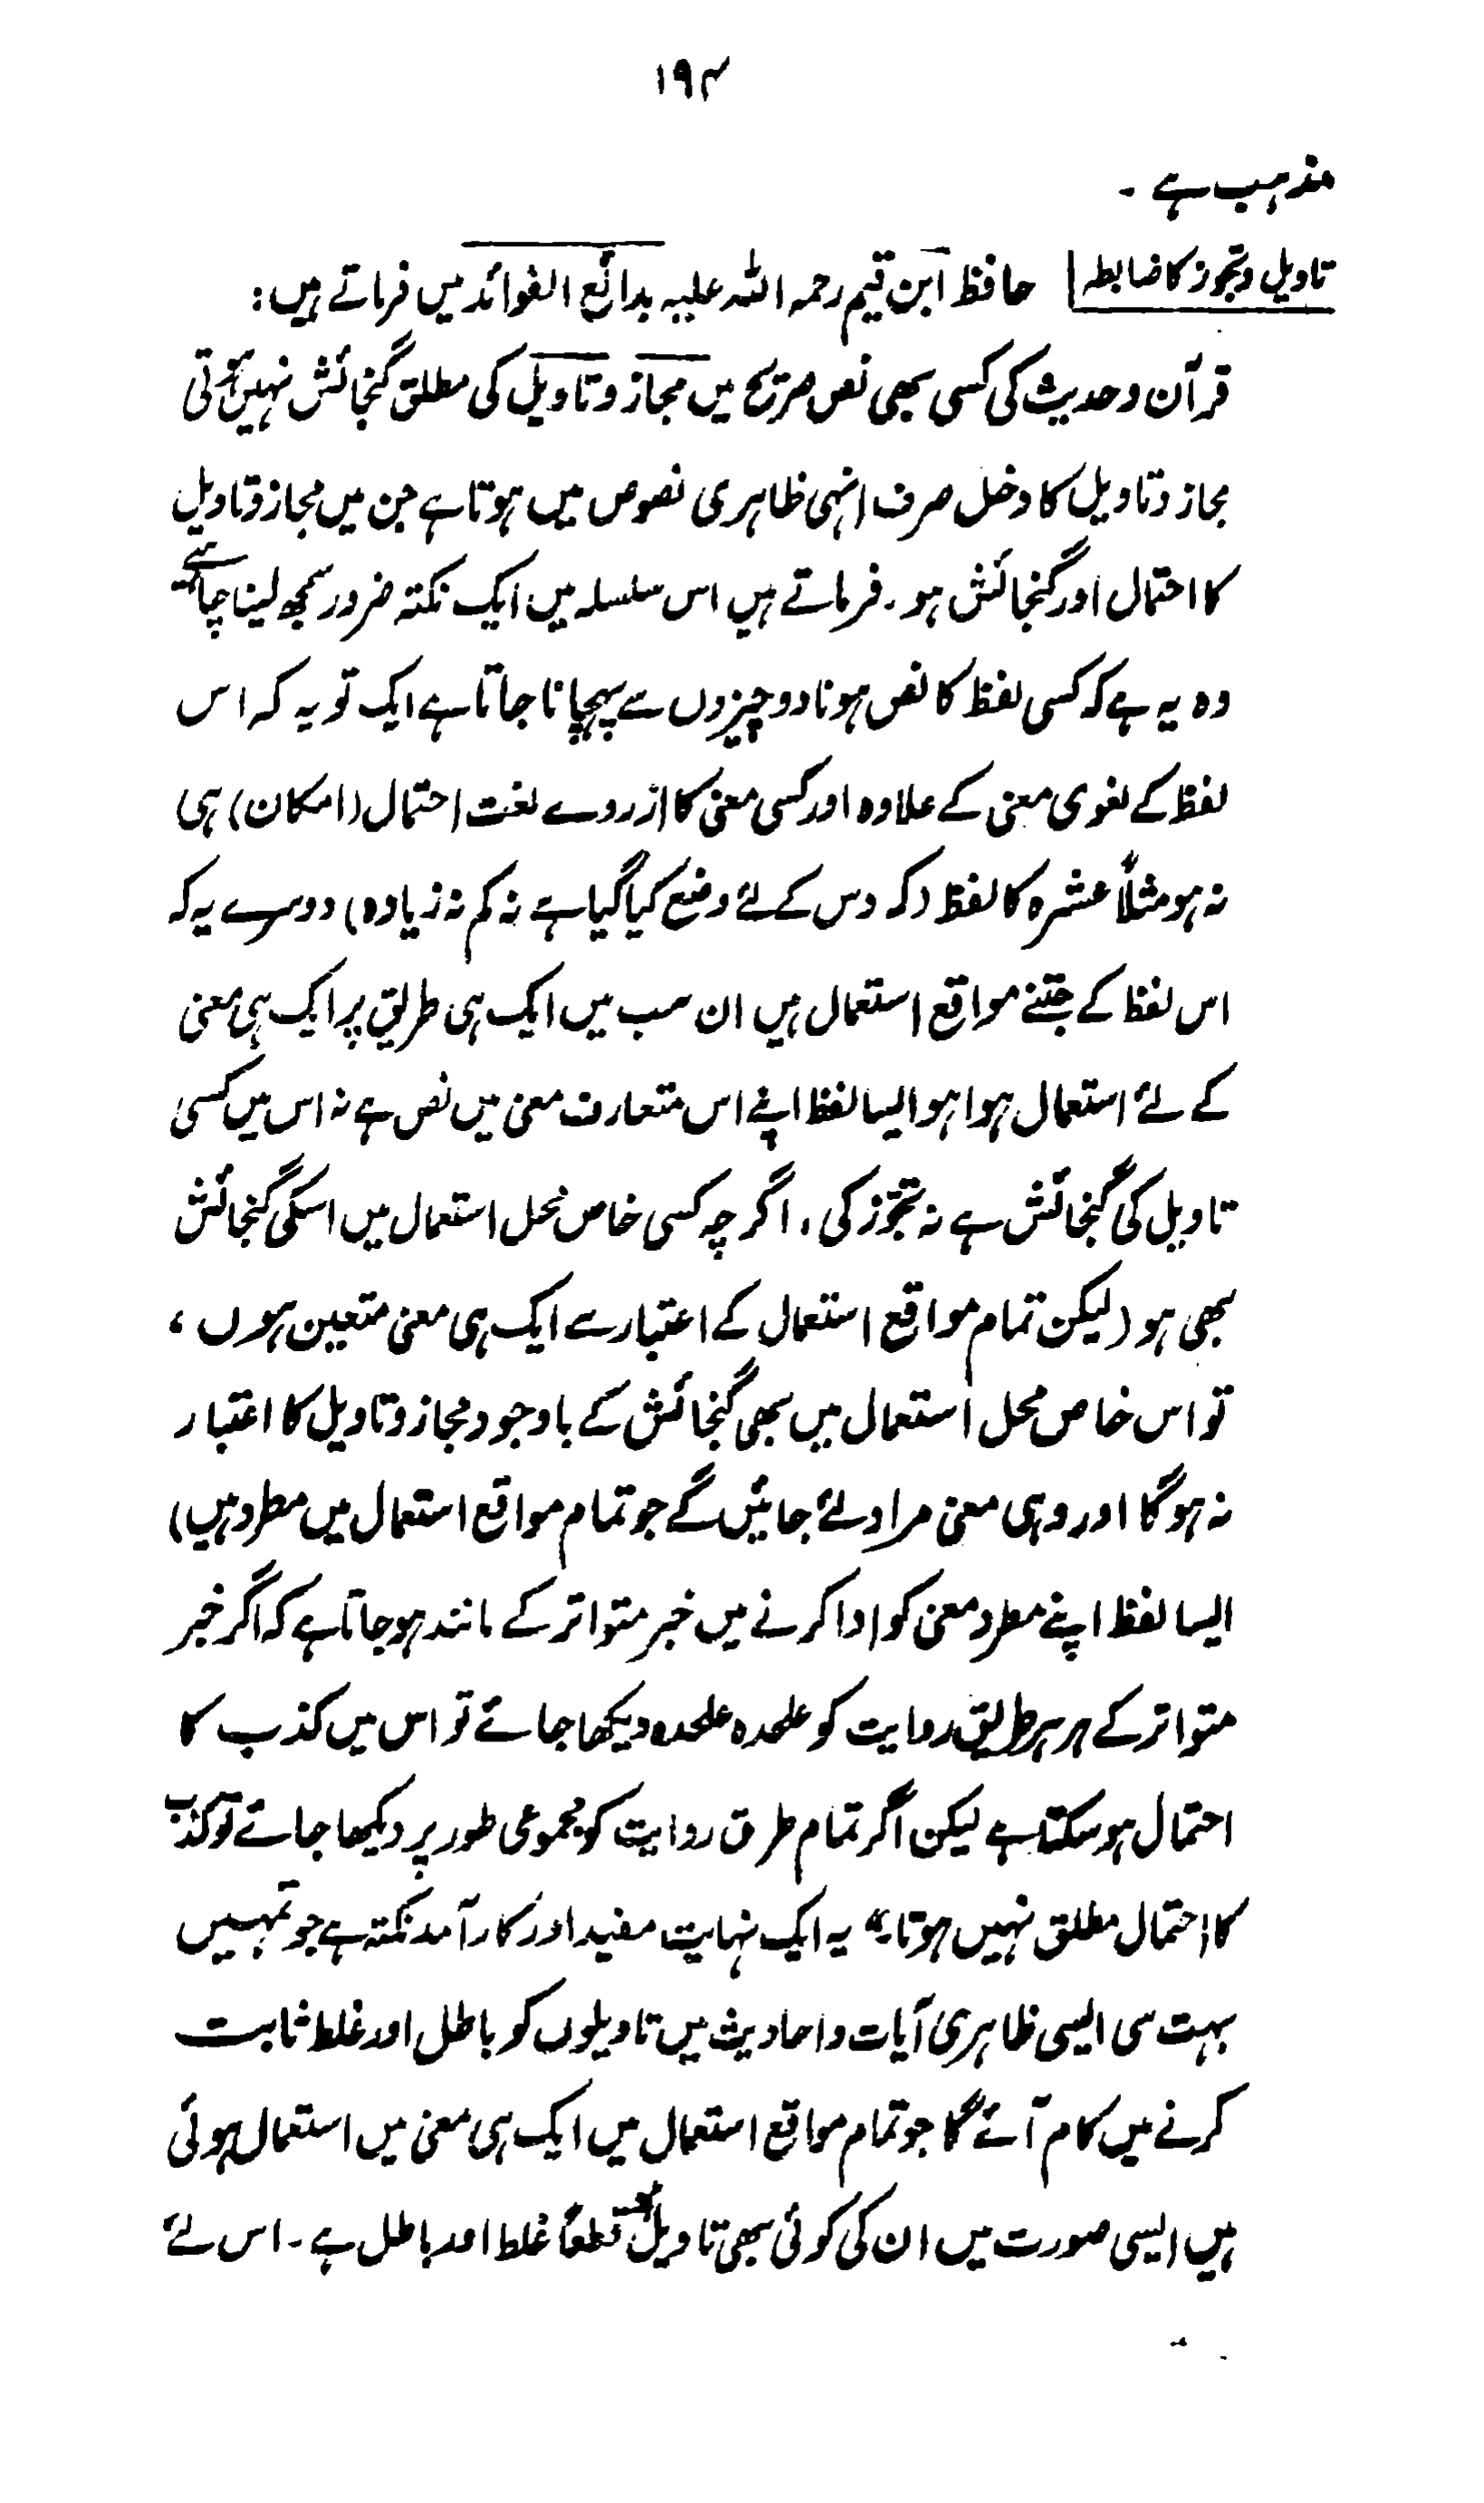 ۱۹۴
مذہب ہے ۔
تاویل و تجوز کا ضابطہ حافظ ابن قیم رحمہ اللہ علیہ بدائع الفوائد میں فرماتے ہیں:
قرآن و حدیث کی کسی بھی نص صریح میں مجاز و تاویل کی مطلق گنجائش نہیں ہوتی
مجاز و تاویل کا دخل صرف انہی ظاہری نصوص میں ہوتا ہے جن میں مجاز و تاویل
کا احتمال اور گنجائش ہو ۔ فرماتے ہیں اس سلسلہ میں ایک نکتہ ضرور سمجھ لینا چاہئے
وہ یہ ہے کہ کسی لفظ کا نص ہونا دو چیزوں سے پہچانا جاتا ہے ایک تو یہ کہ اس
لفظ کے لغوی معنی کے علاوہ اور کسی معنی کا از روے لغت احتمال (امکان) ہی
نہ ہو مثلاً عشرہ کا لفظ (کہ دس کے لئے وضع کیا گیا ہے نہ کم نہ زیادہ) دوسرے یہ کہ
اس لفظ کے جتنے مواقع استعمال ہیں ان سب میں ایک ہی طریق پر ایک ہی معنی
کے لئے استعمال ہوا ہو ایسا لفظ اپنے اس متعارف معنی میں نص ہے نہ اس میں کسی
تاویل کی گنجائش ہے نہ تجوّز کی ، اگر چہ کسی خاص محل استعمال میں اسکی گنجائش
بھی ہو (لیکن تمام مواقع استعمال کے اعتبار سے ایک ہی معنی متعین ہوں ،
تو اس خاص محل استعمال میں بھی گنجائش کے باوجود مجاز و تاویل کا اعتبار
نہ ہو گا اور وہی معنی مراد لئے جائیں گے جو تمام مواقع استعمال میں مطرد ہیں)
ایسا لفظ اپنے مطرد معنی کو ادا کرنے میں خبر متواتر کے مانند ہو جاتا ہے کہ اگر خبر
متواتر کے ہر ہر طریق روایت کو علحدہ علحدہ دیکھا جائے تو اس میں کذب کا
احتمال ہو سکتا ہے لیکن اگر تمام طرق روایت کو مجموعی طور پر دیکھا جائے تو کذب
کا احتمال مطلق نہیں ہوتا ۔“ یہ ایک نہایت مفید اور کار آمد نکتہ ہے جو تمہیں
بہت سی ایسی ظاہری آیات و احادیث میں تاویلوں کو باطل اور غلط ثابت
کرنے میں کام آئے گا جو تمام مواقع استعمال میں ایک ہی معنی میں استعمال ہوئی
ہیں ایسی صورت میں ان کی کوئی بھی تاویل قطعاً غلط اور باطل ہے ۔ اس لئے